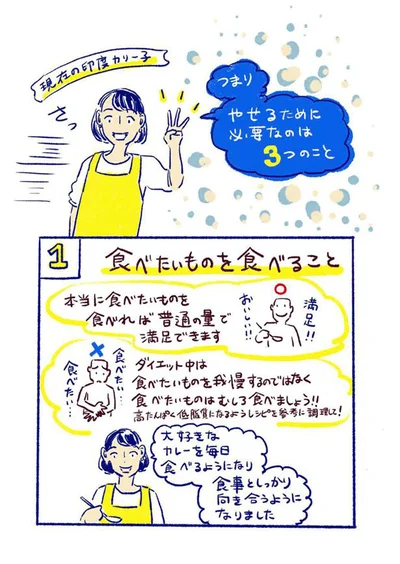 現在の印度カリー子
さっ
つまり
やせるために
必要なのは
3つのこと
1
食べたいものを食べること
本当に食べたいものを
食べれば普通の量で
満足できます
満足!!
おいしい!!
食べたい…
食べたい…
ダイエット中は
食べたいものを我慢するのではなく
食べたいものはむしろ食べましょう!!
高たんぱく低脂質になるようレシピを参考に調理して!
大好きな
カレーを毎日
食べるようになり
食事としっかり
向き合うように
なりました